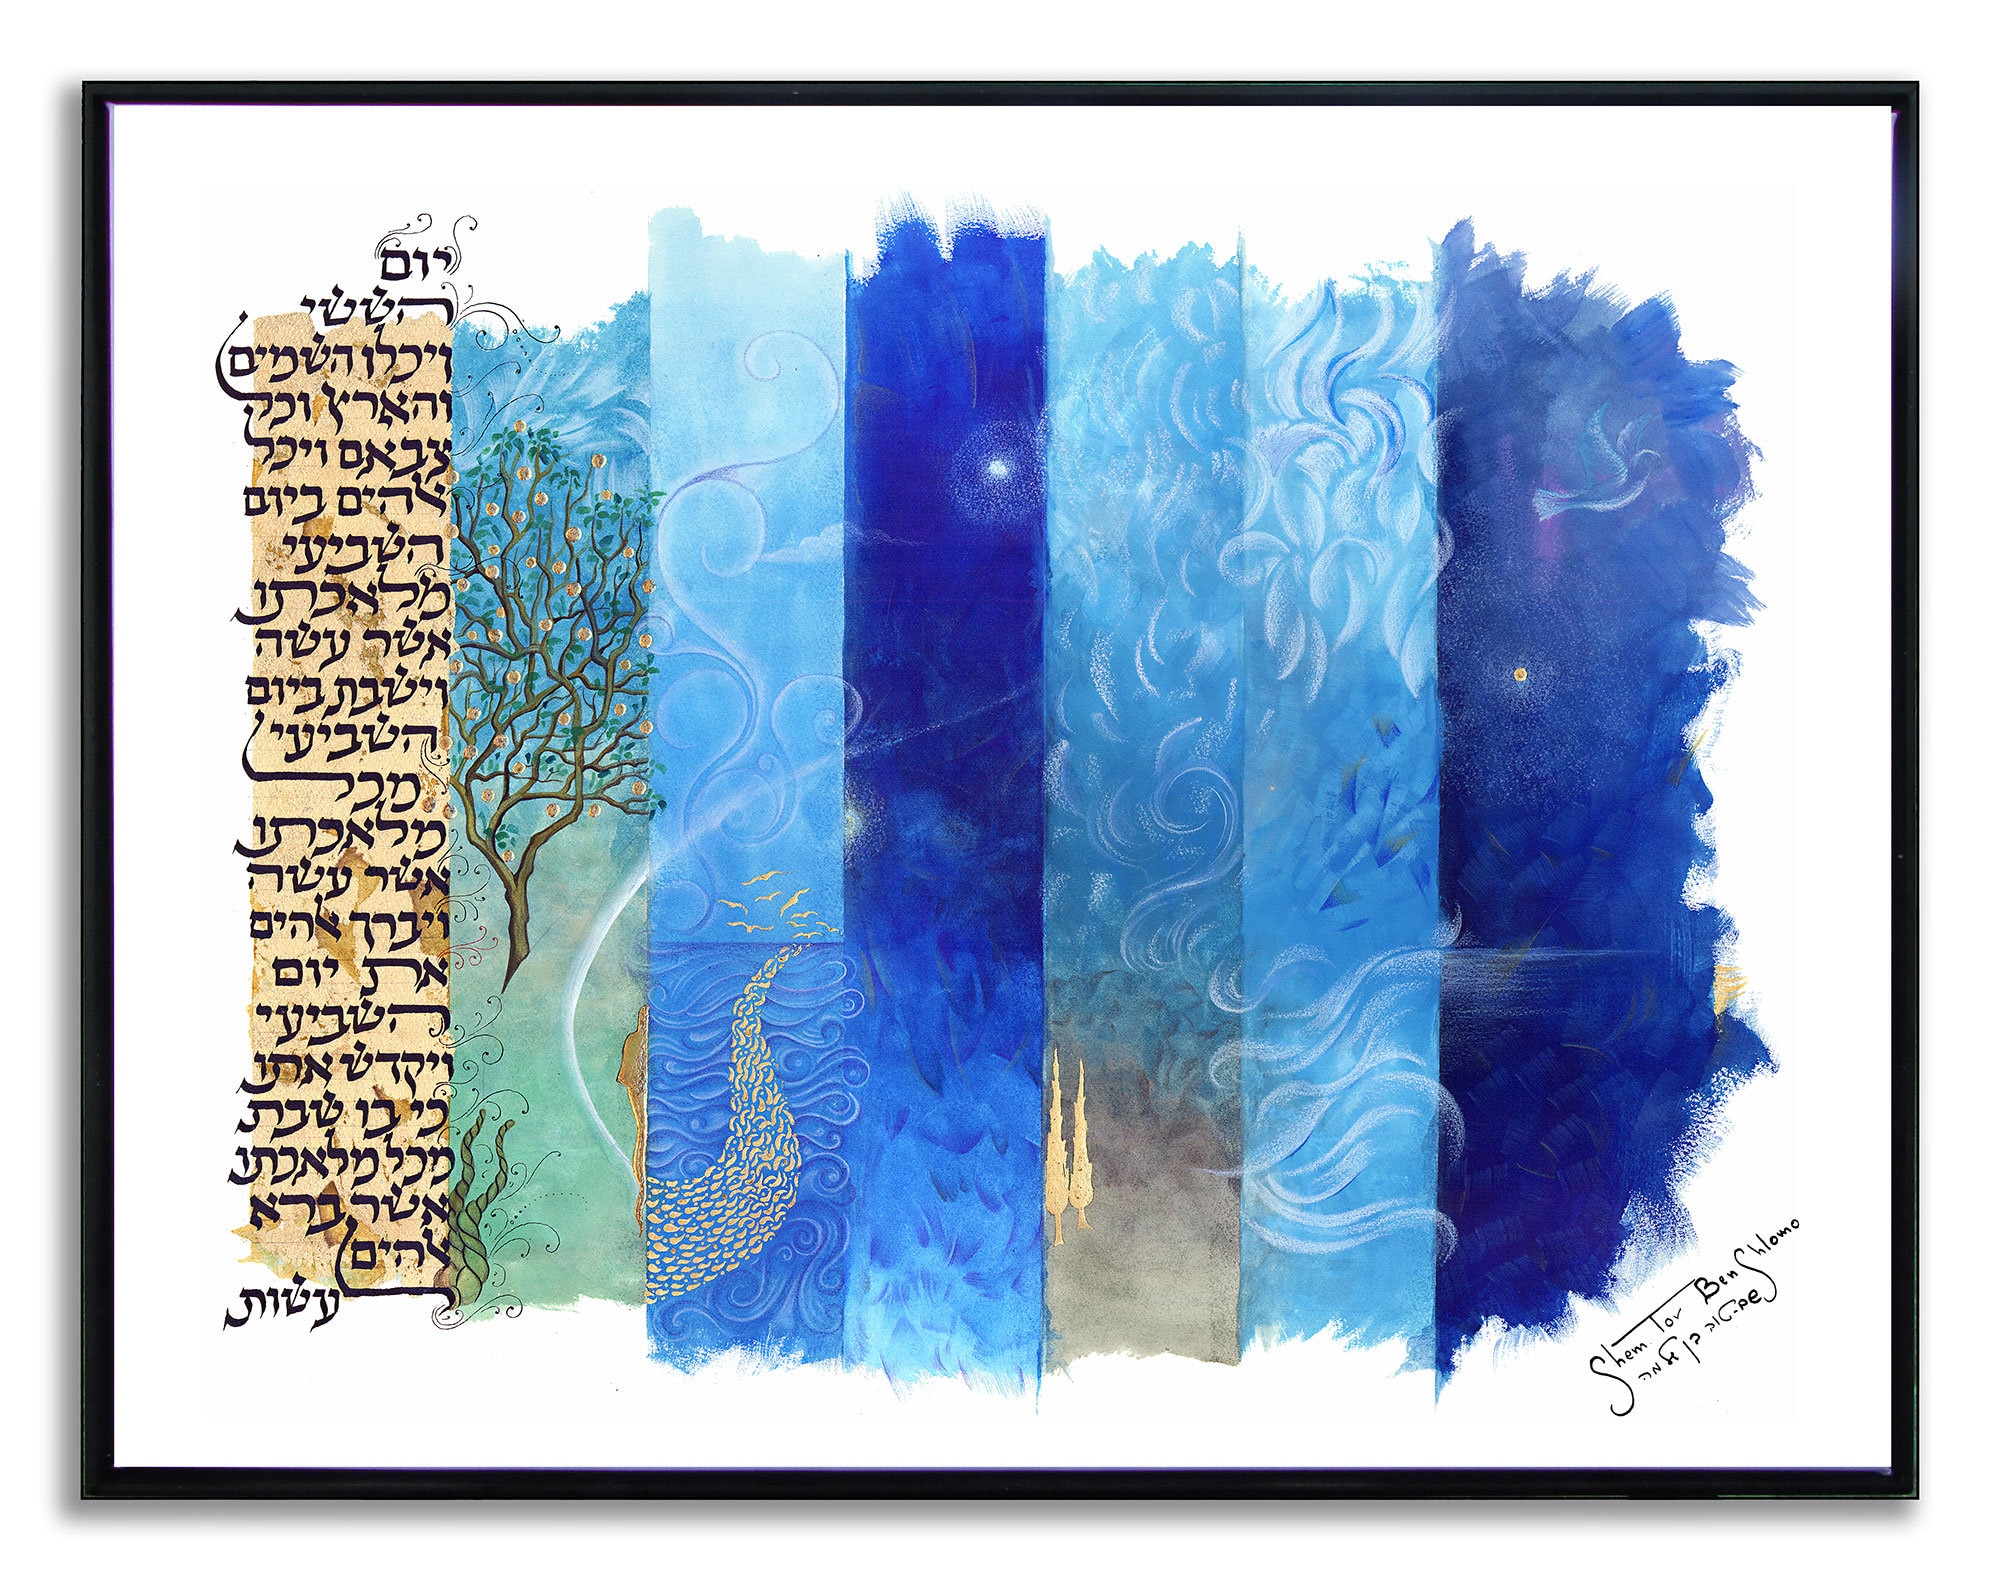 יום
הששי
ויכלו השמים
והארץ וכל
צבאם ויכל
אלהים ביום
השביעי
מלאכתו
אשר עשה
וישבת ביום
השביעי
מכל
מלאכתו
אשר עשה
ויברך אלהים
את יום
השביעי
ויקדש אתו
כי בו שבת
מכל מלאכתו
אשר ברא
אלהים
לעשות
Shem Tov Ben Shlomo
שם-טוב בן שלמה